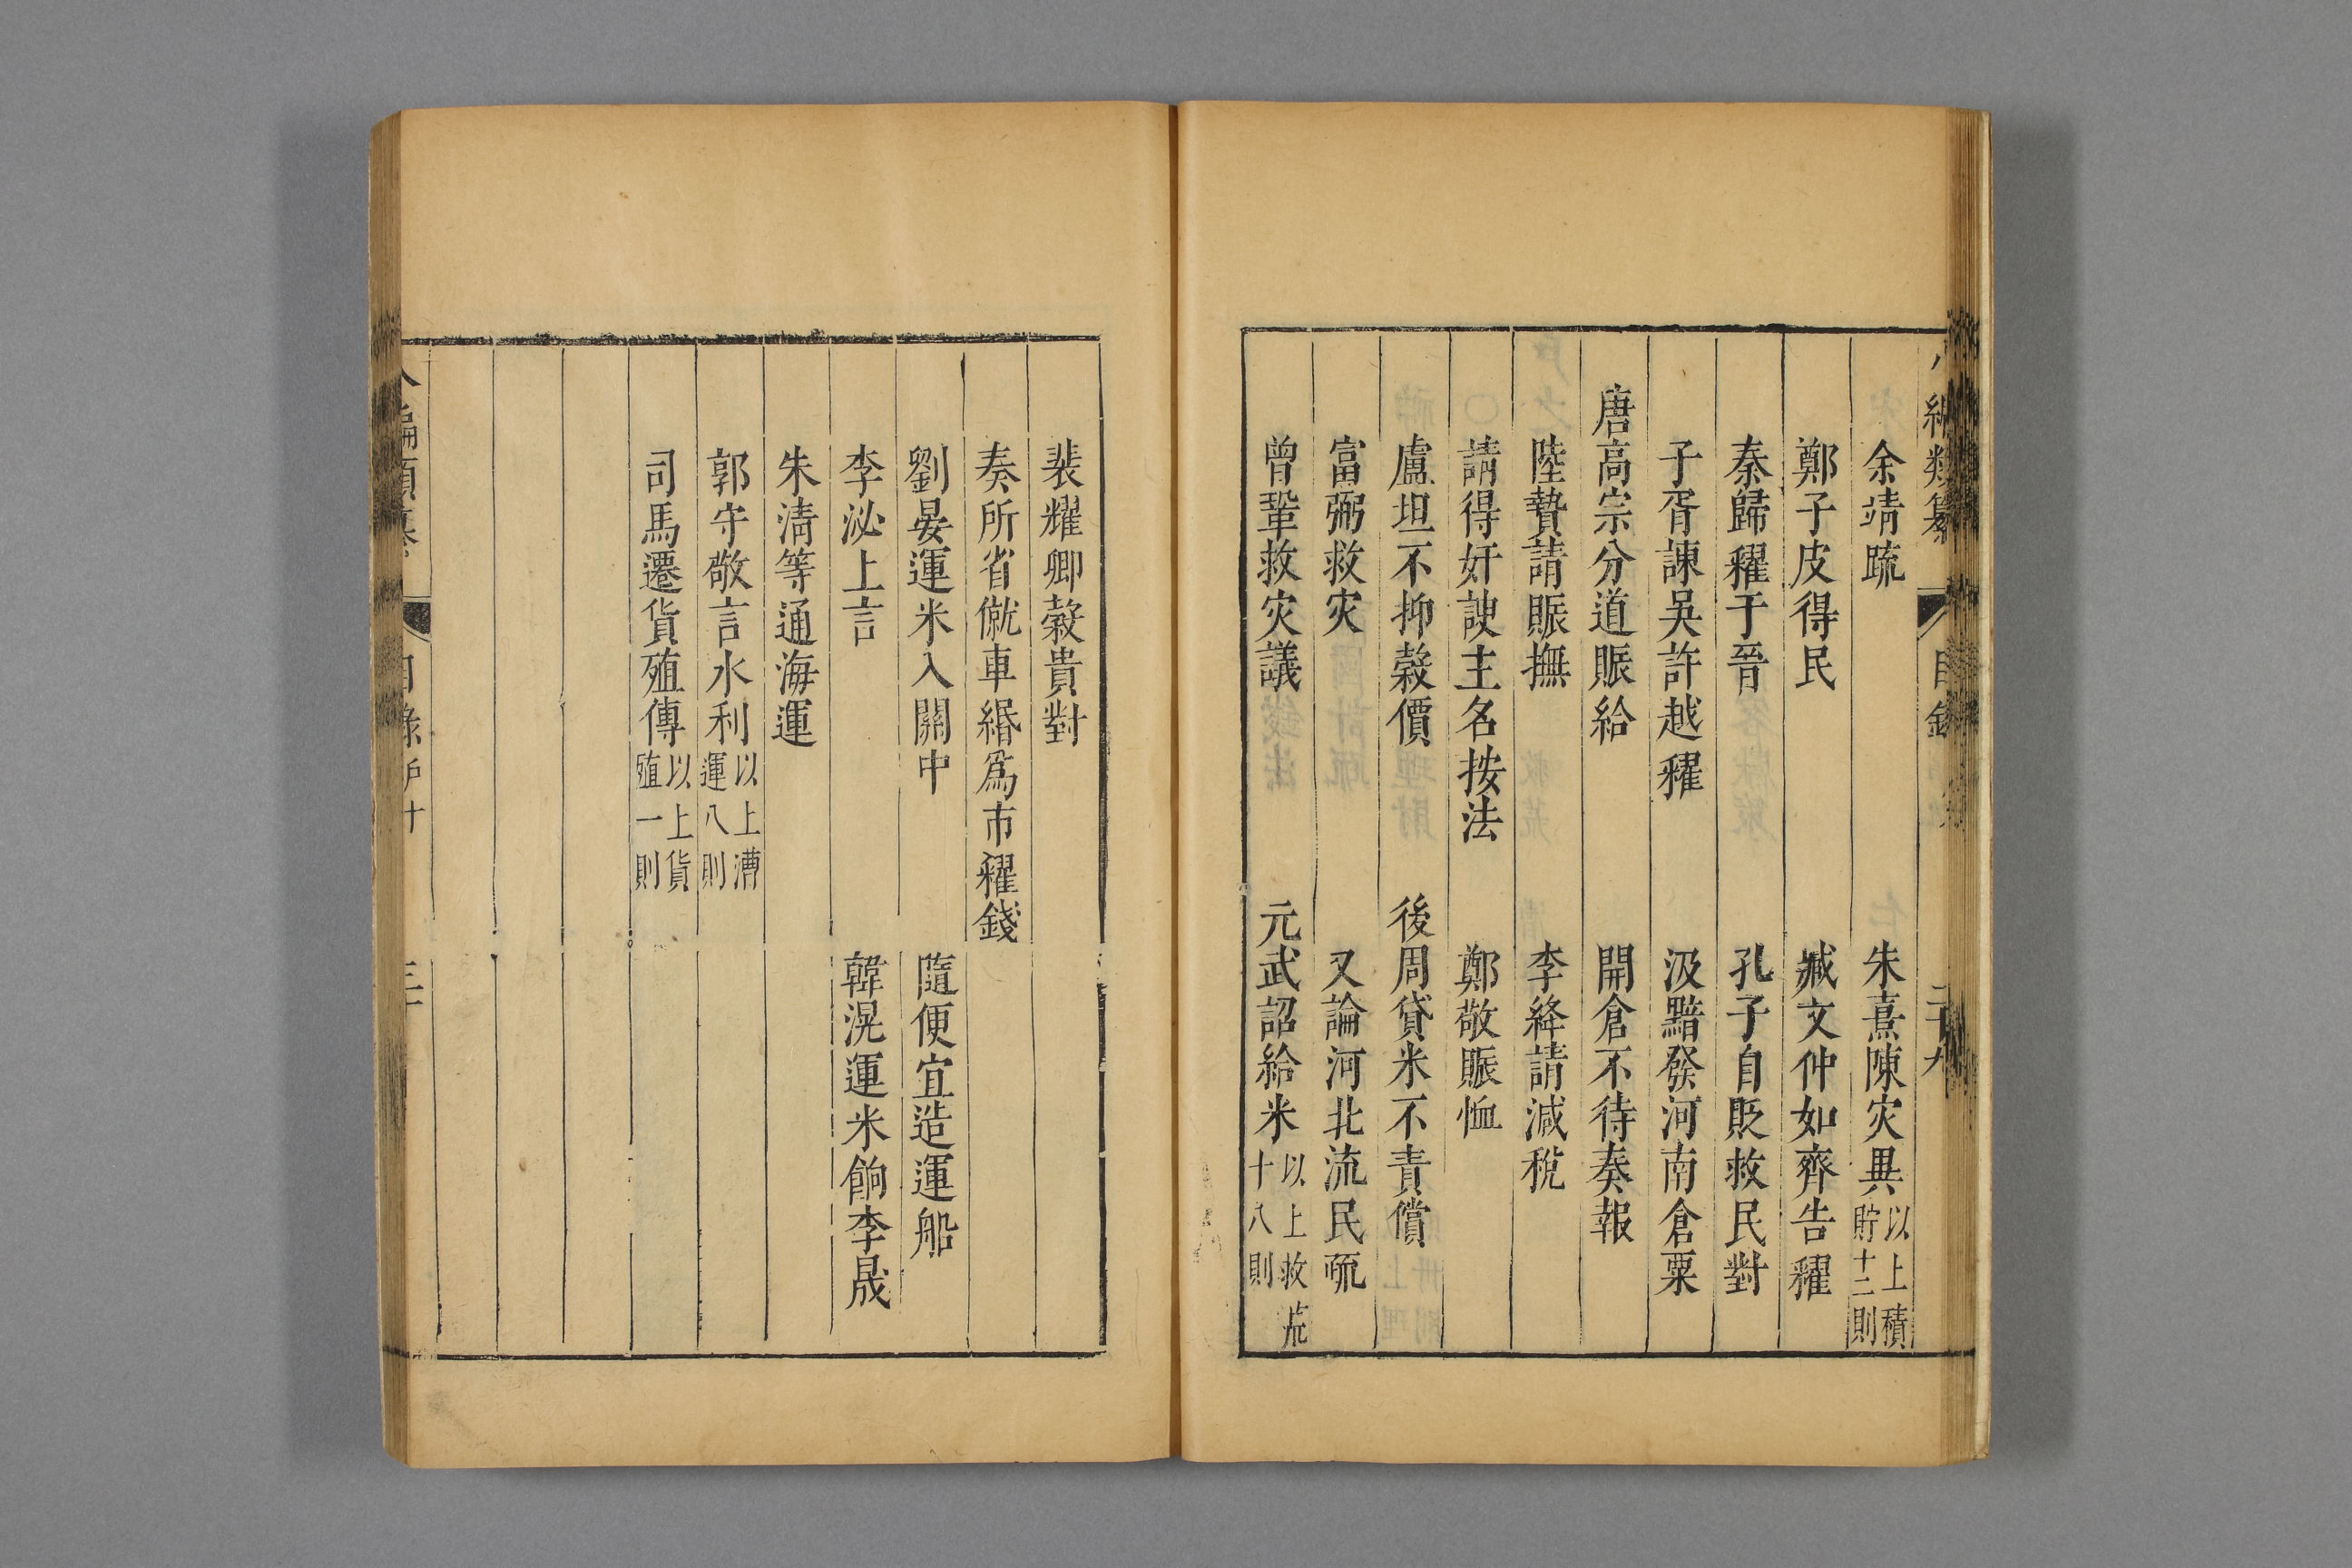 編類纂 目錄 二十九
余靖疏 朱熹陳灾異 以上積貯十二則
鄭子皮得民 臧文仲如齊告糴
秦歸糴于晉 孔子自貶救民對
子胥諫吳許越糴 汲黯發河南倉粟
唐高宗分道賑給 開倉不待奏報
陸贄請賑撫 李絳請減稅
請得奸諛主名按法 鄭敬賑恤
盧坦不抑穀價 後周貸米不責償
富弼救灾 又論河北流民疏
曾鞏救灾議 元武詔給米 以上救荒十八則
裴耀卿穀貴對
奏所省僦車緡爲市糴錢
劉晏運米入關中 隨便宜造運船
李泌上言 韓滉運米餉李晟
朱清等通海運
郭守敬言水利 以上漕運八則
司馬遷貨殖傳 以上貨殖一則
八編類纂 目錄